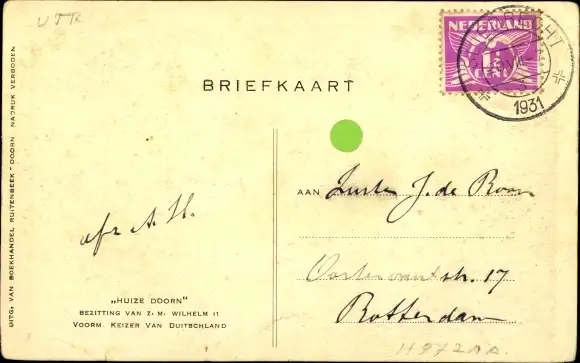 UTR
NEDERLAND
1½
CENT
1931
BRIEFKAART
UITG: VAN BOEKHANDEL "RUITENBEEK" DOORN NADRUK VERBODEN
afz A. H.
„HUIZE DOORN"
BEZITTING VAN Z. M. WILHELM II
VOORM. KEIZER VAN DUITSCHLAND
AAN Zuster J. de Roon
str. 17
Rotterdam